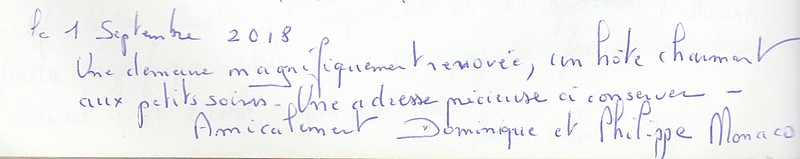 le 1 Septembre 2018
Une demeure magnifiquement renovée, un hôte charmant
aux petits soins - Une adresse précieuse à conserver -
Amicalement Dominique et Philippe Monaco